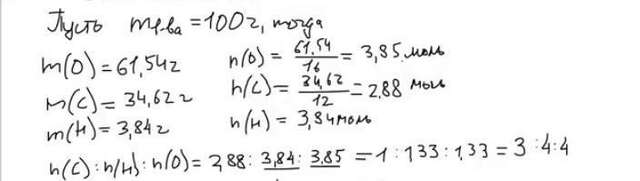 Пусть mв-ва = 100г, тогда
m(O) = 61,54г n(O) = 61,54/16 = 3,85 моль
m(C) = 34,62 г n(C) = 34,62/12 = 2,88 моль
m(H) = 3,84г n(H) = 3,84 моль
n(C) : n(H) : n(O) = 2,88 : 3,84 : 3,85 = 1 : 1,33 : 1,33 = 3 : 4 : 4